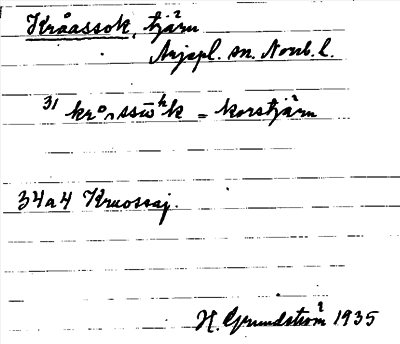 Kråassok, tjärn
Arjepl. sn. Norrb. l.
31 krå₍ssω̄ʰk = korstjärn
34a4 Kruossaj.
H. Grundström 1935